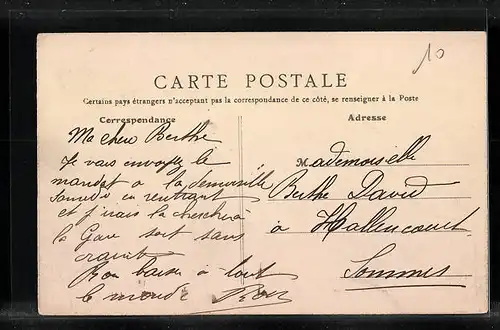 10
CARTE POSTALE
Certains pays étrangers n'acceptant pas la correspondance de ce côté, se renseigner à la Poste
Correspondance
Ma cher Berthe
Je vais envoyer le
mandat a la
samedi en rentrant
et j'irais la chercher a
la Gare sert sans
Bon baiser à tout
le monde
Adresse
Mademoiselle
Berthe David
à Hallencourt
Sommes